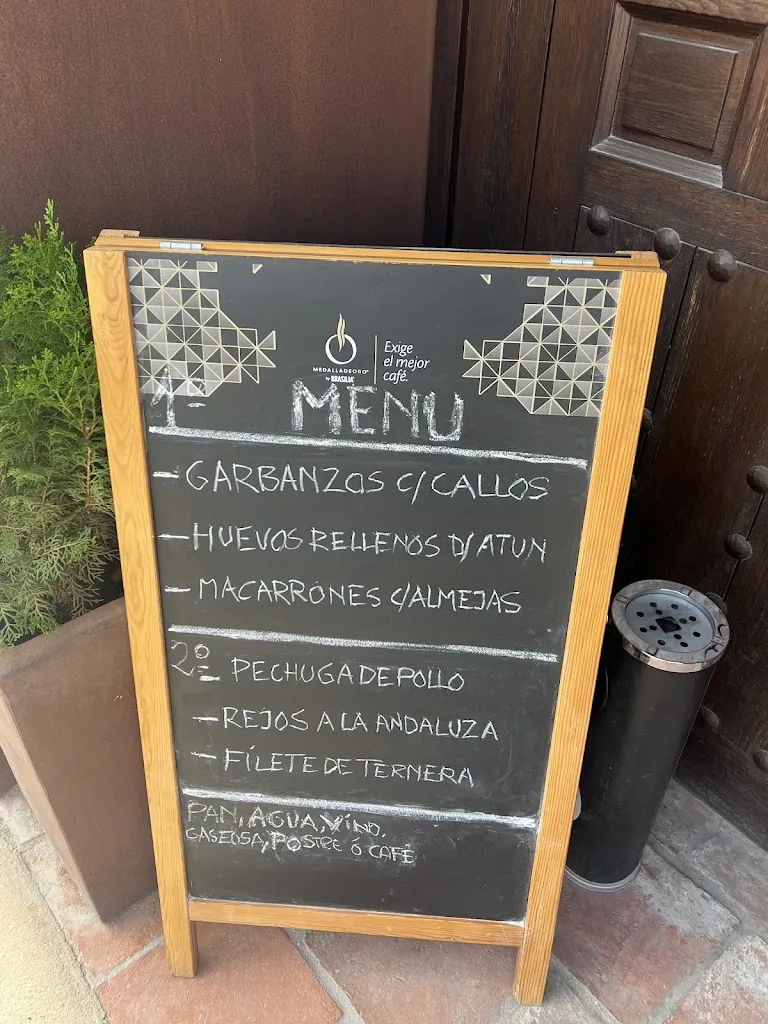 MEDALLADEORO
by BRASILIA
Exige
el mejor
café.
1º-
MENU
- GARBANZOS C/CALLOS
- HUEVOS RELLENOS D/ATUN
- MACARRONES C/ALMEJAS
2º
- PECHUGA DE POLLO
- REJOS A LA ANDALUZA
- FÍLETE DE TERNERA
PAN, AGUA, VÍNO,
GASEOSA, POSTRE Ó CAFÉ